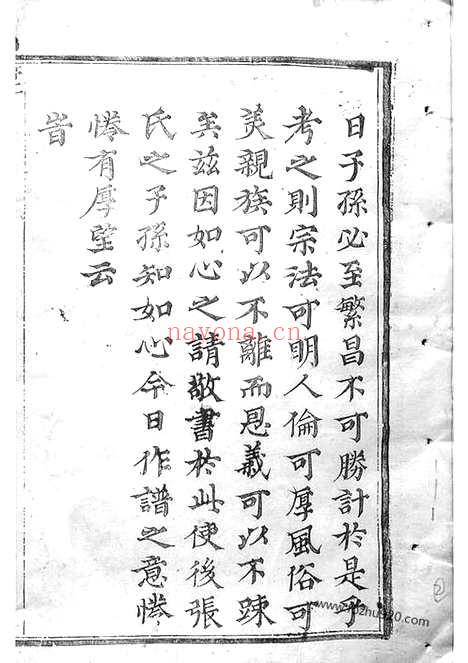 日子孫必至繁昌不可勝計於是乎
考之則宗法可明人倫可厚風俗可
美親族可以不離而恩義可以不踈
矣兹因如心之請敬書於此使後張
氏之子孫知如心今日作譜之意惓
惓有厚望云
旹
nayona.cn